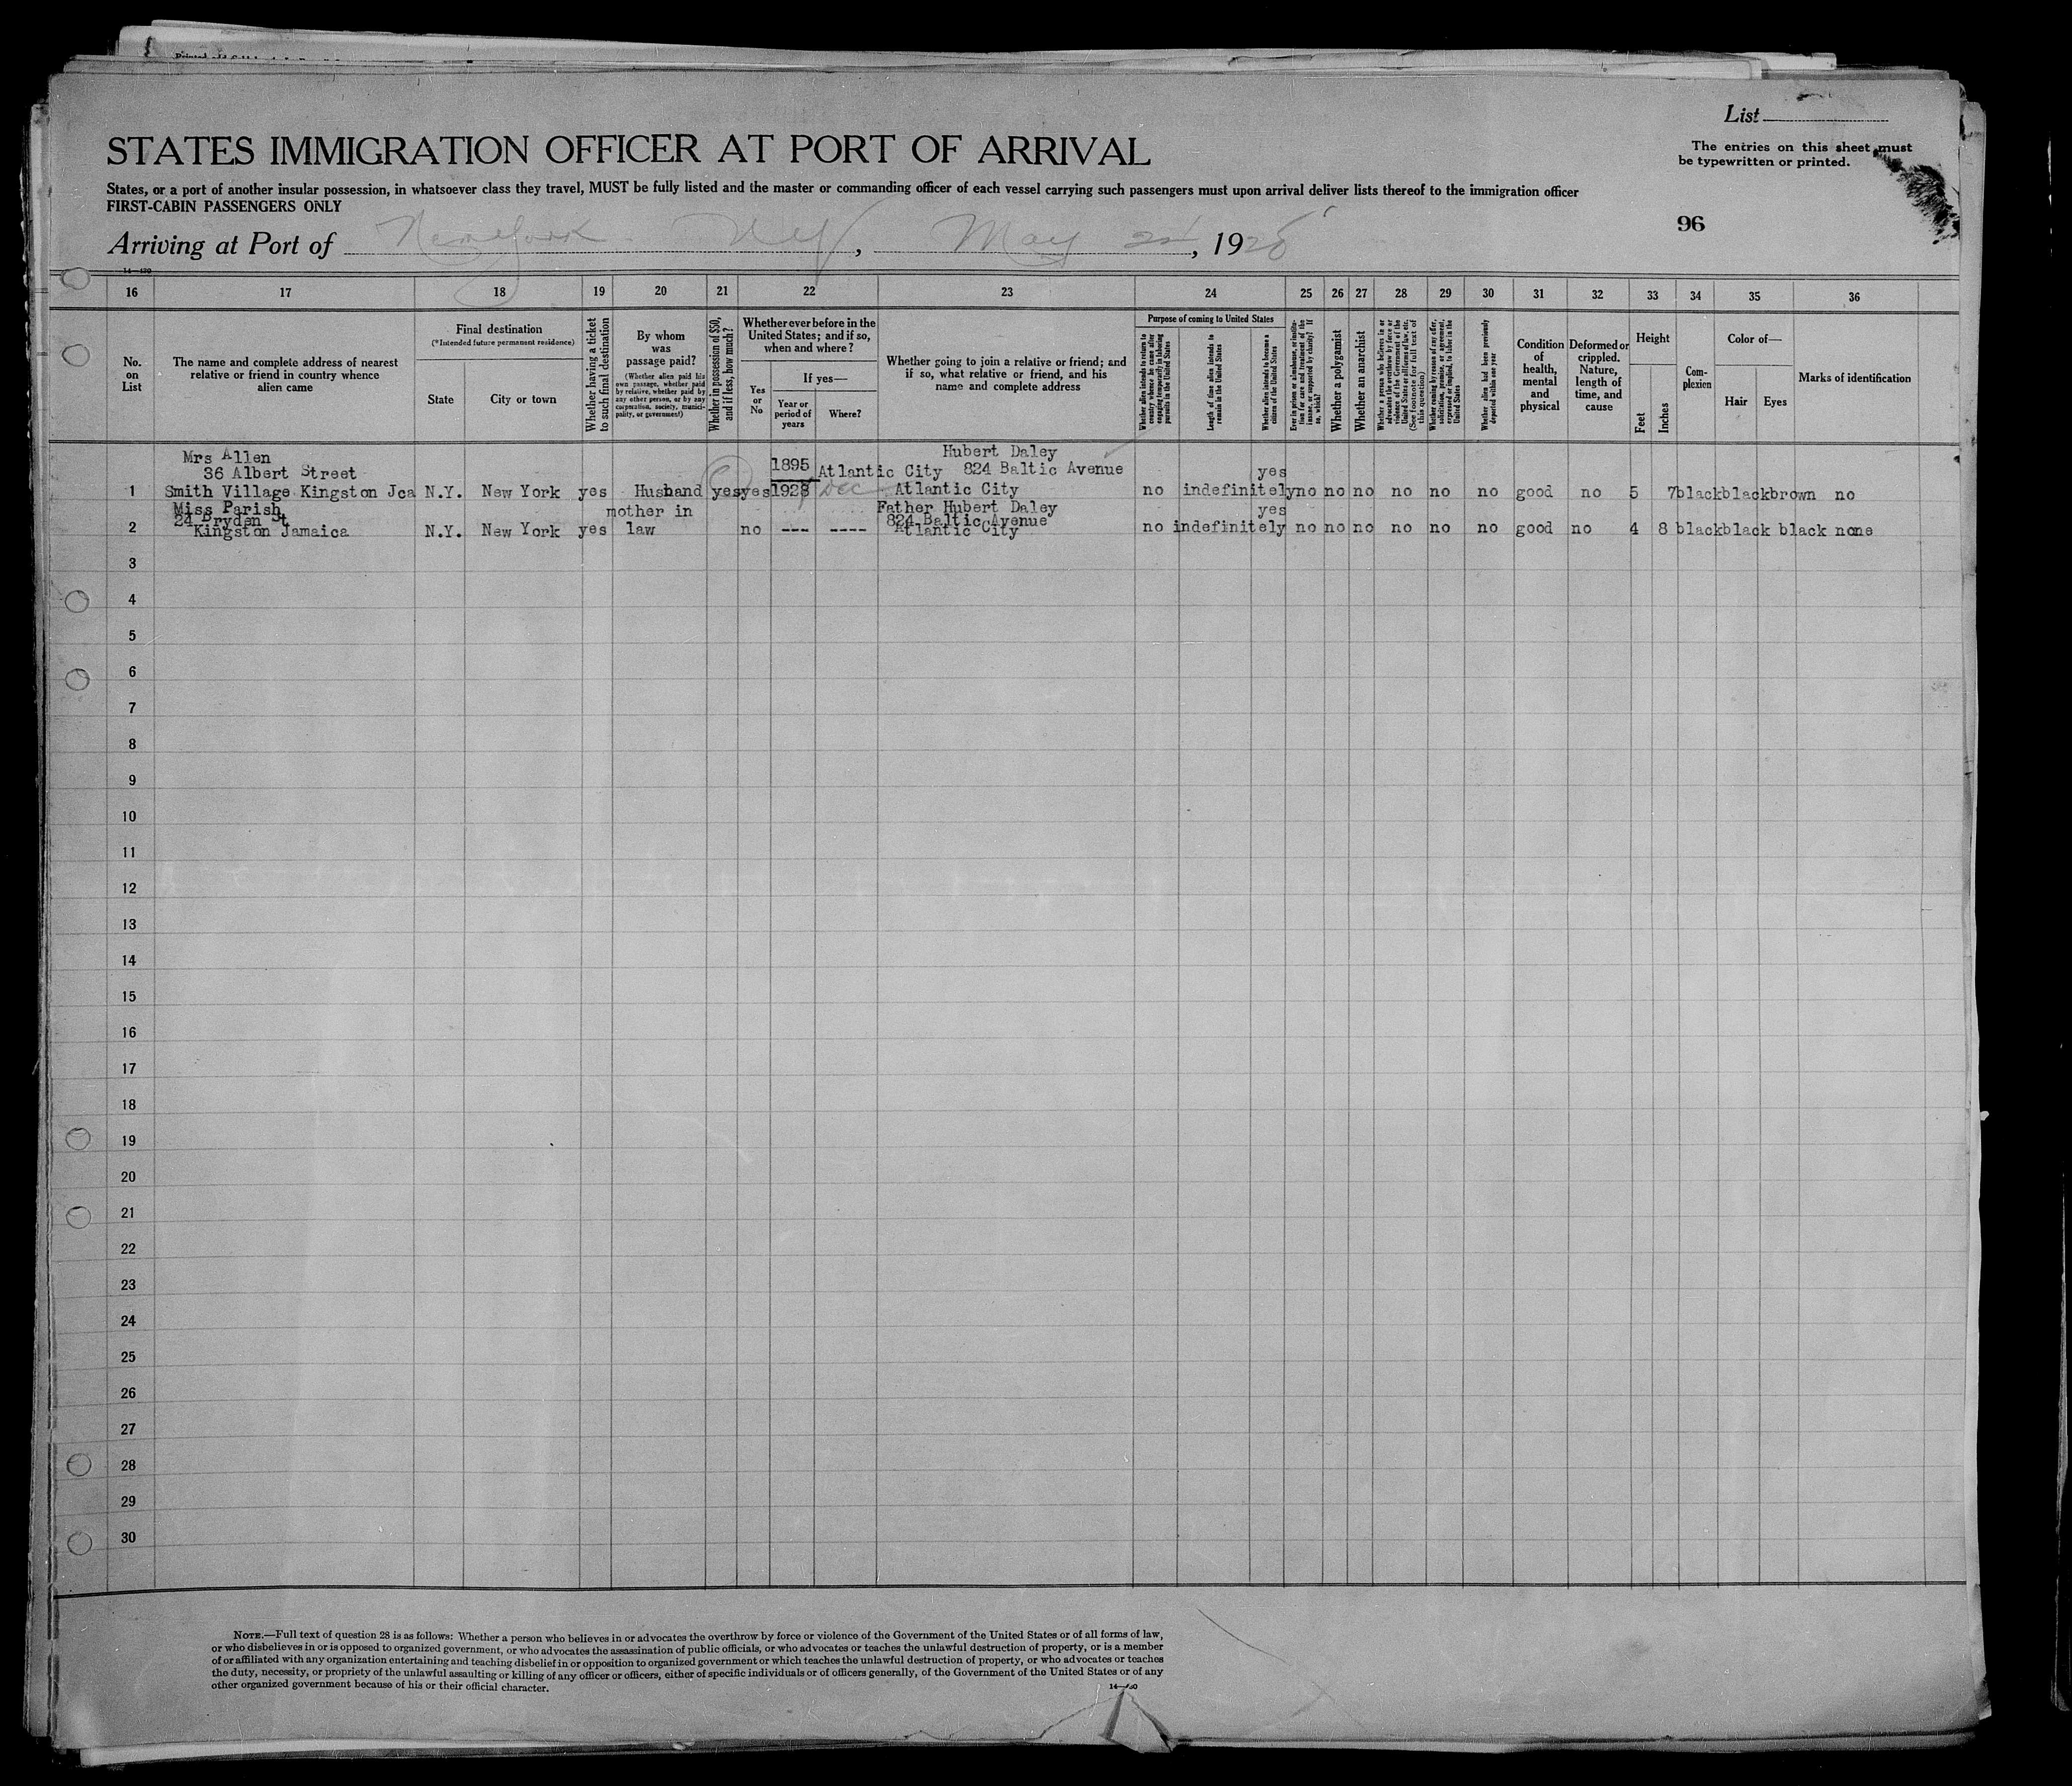 List
STATES IMMIGRATION OFFICER AT PORT OF ARRIVAL
The entries on this sheet must
be typewritten or printed.
States, or a port of another insular possession, in whatsoever class they travel, MUST be fully listed and the master or commanding officer of each vessel carrying such passengers must upon arrival deliver lists thereof to the immigration officer
FIRST-CABIN PASSENGERS ONLY
96
Arriving at Port of New York NY, May , 1928
16 17 18 19 20 21 22 23 24 25 26 27 28 29 30 31 32 33 34 35 36
No. on List
The name and complete address of nearest relative or friend in country whence alien came
Final destination
(*Intended future permanent residence)
State
City or town
Whether having a ticket to such final destination
By whom was passage paid?
(Whether alien paid his own passage, whether paid by relative, whether paid by any other person, or by any corporation, society, municipality, or government)
Whether in possession of $50, and if less, how much?
Whether ever before in the United States; and if so, when and where?
Yes or No
If yes—
Year or period of years
Where?
Whether going to join a relative or friend; and if so, what relative or friend, and his name and complete address
Purpose of coming to United States
Whether alien intends to return to country whence he came after engaging temporarily in laboring pursuits in the United States
Length of time alien intends to remain in the United States
Whether alien intends to become a citizen of the United States
Ever in prison or almshouse, or institution for care and treatment of the insane, or supported by charity? If so, which?
Whether a polygamist
Whether an anarchist
Whether a person who believes in or advocates the overthrow by force or violence of the Government of the United States or all forms of law, etc. (See footnote for full text of this question)
Whether coming by reason of any offer, solicitation, promise, or agreement, expressed or implied, to labor in the United States
Whether alien had been previously deported within one year
Condition of health, mental and physical
Deformed or crippled. Nature, length of time, and cause
Height
Feet
Inches
Complexion
Color of—
Hair
Eyes
Marks of identification
Mrs Allen Hubert Daley
36 Albert Street 1895 Atlantic City 824 Baltic Avenue yes
1 Smith Village Kingston Jca N.Y. New York yes Husband yes yes 1928 Dec Atlantic City no indefinitely no no no no no no good no 5 7 black black brown no
Miss Parish mother in Father Hubert Daley yes
24 Bryden St 824 Baltic Avenue
2 Kingston Jamaica N.Y. New York yes law no --- ---- Atlantic City no indefinitely no no no no no no good no 4 8 black black black none
3
4
5
6
7
8
9
10
11
12
13
14
15
16
17
18
19
20
21
22
23
24
25
26
27
28
29
30
NOTE.—Full text of question 28 is as follows: Whether a person who believes in or advocates the overthrow by force or violence of the Government of the United States or of all forms of law,
or who disbelieves in or is opposed to organized government, or who advocates the assassination of public officials, or who advocates or teaches the unlawful destruction of property, or is a member
of or affiliated with any organization entertaining and teaching disbelief in or opposition to organized government or which teaches the unlawful destruction of property, or who advocates or teaches
the duty, necessity, or propriety of the unlawful assaulting or killing of any officer or officers, either of specific individuals or of officers generally, of the Government of the United States or of any
other organized government because of his or their official character.